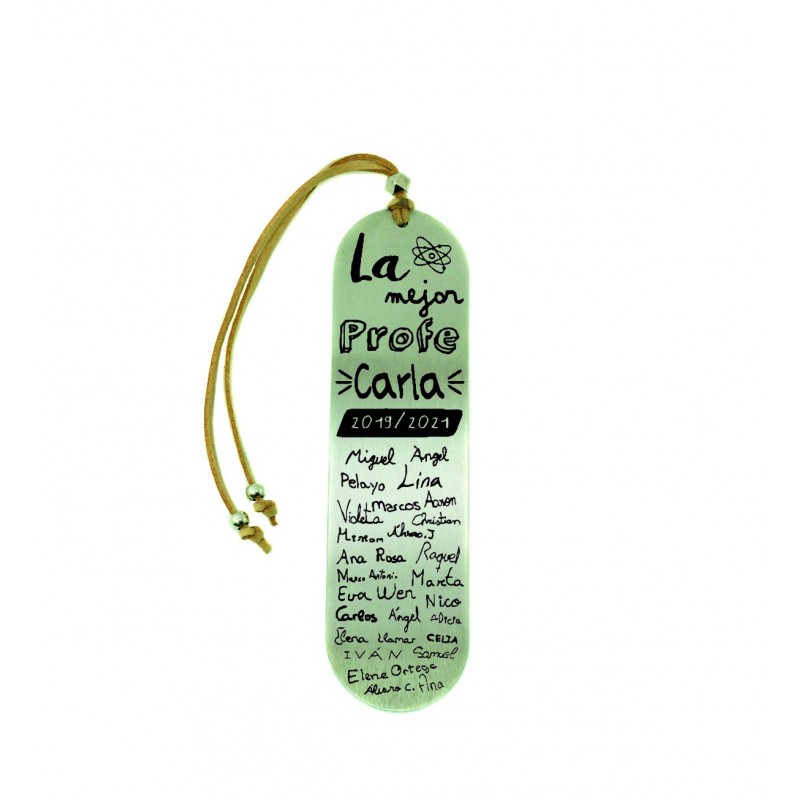 La
mejor
Profe
Carla
2019/2021
Miguel Àngel
Pelayo Lina
Marcos Aaron
Violeta Christian
Miriam Álvaro.J
Ana Rosa Raquel
Marco Antoni. Marta
Eva Wen Nico
Carlos Ángel alicia
Elena Llamar CELIA
IVÁN Samuel
Elene Ortega
Alvaro C. Pina